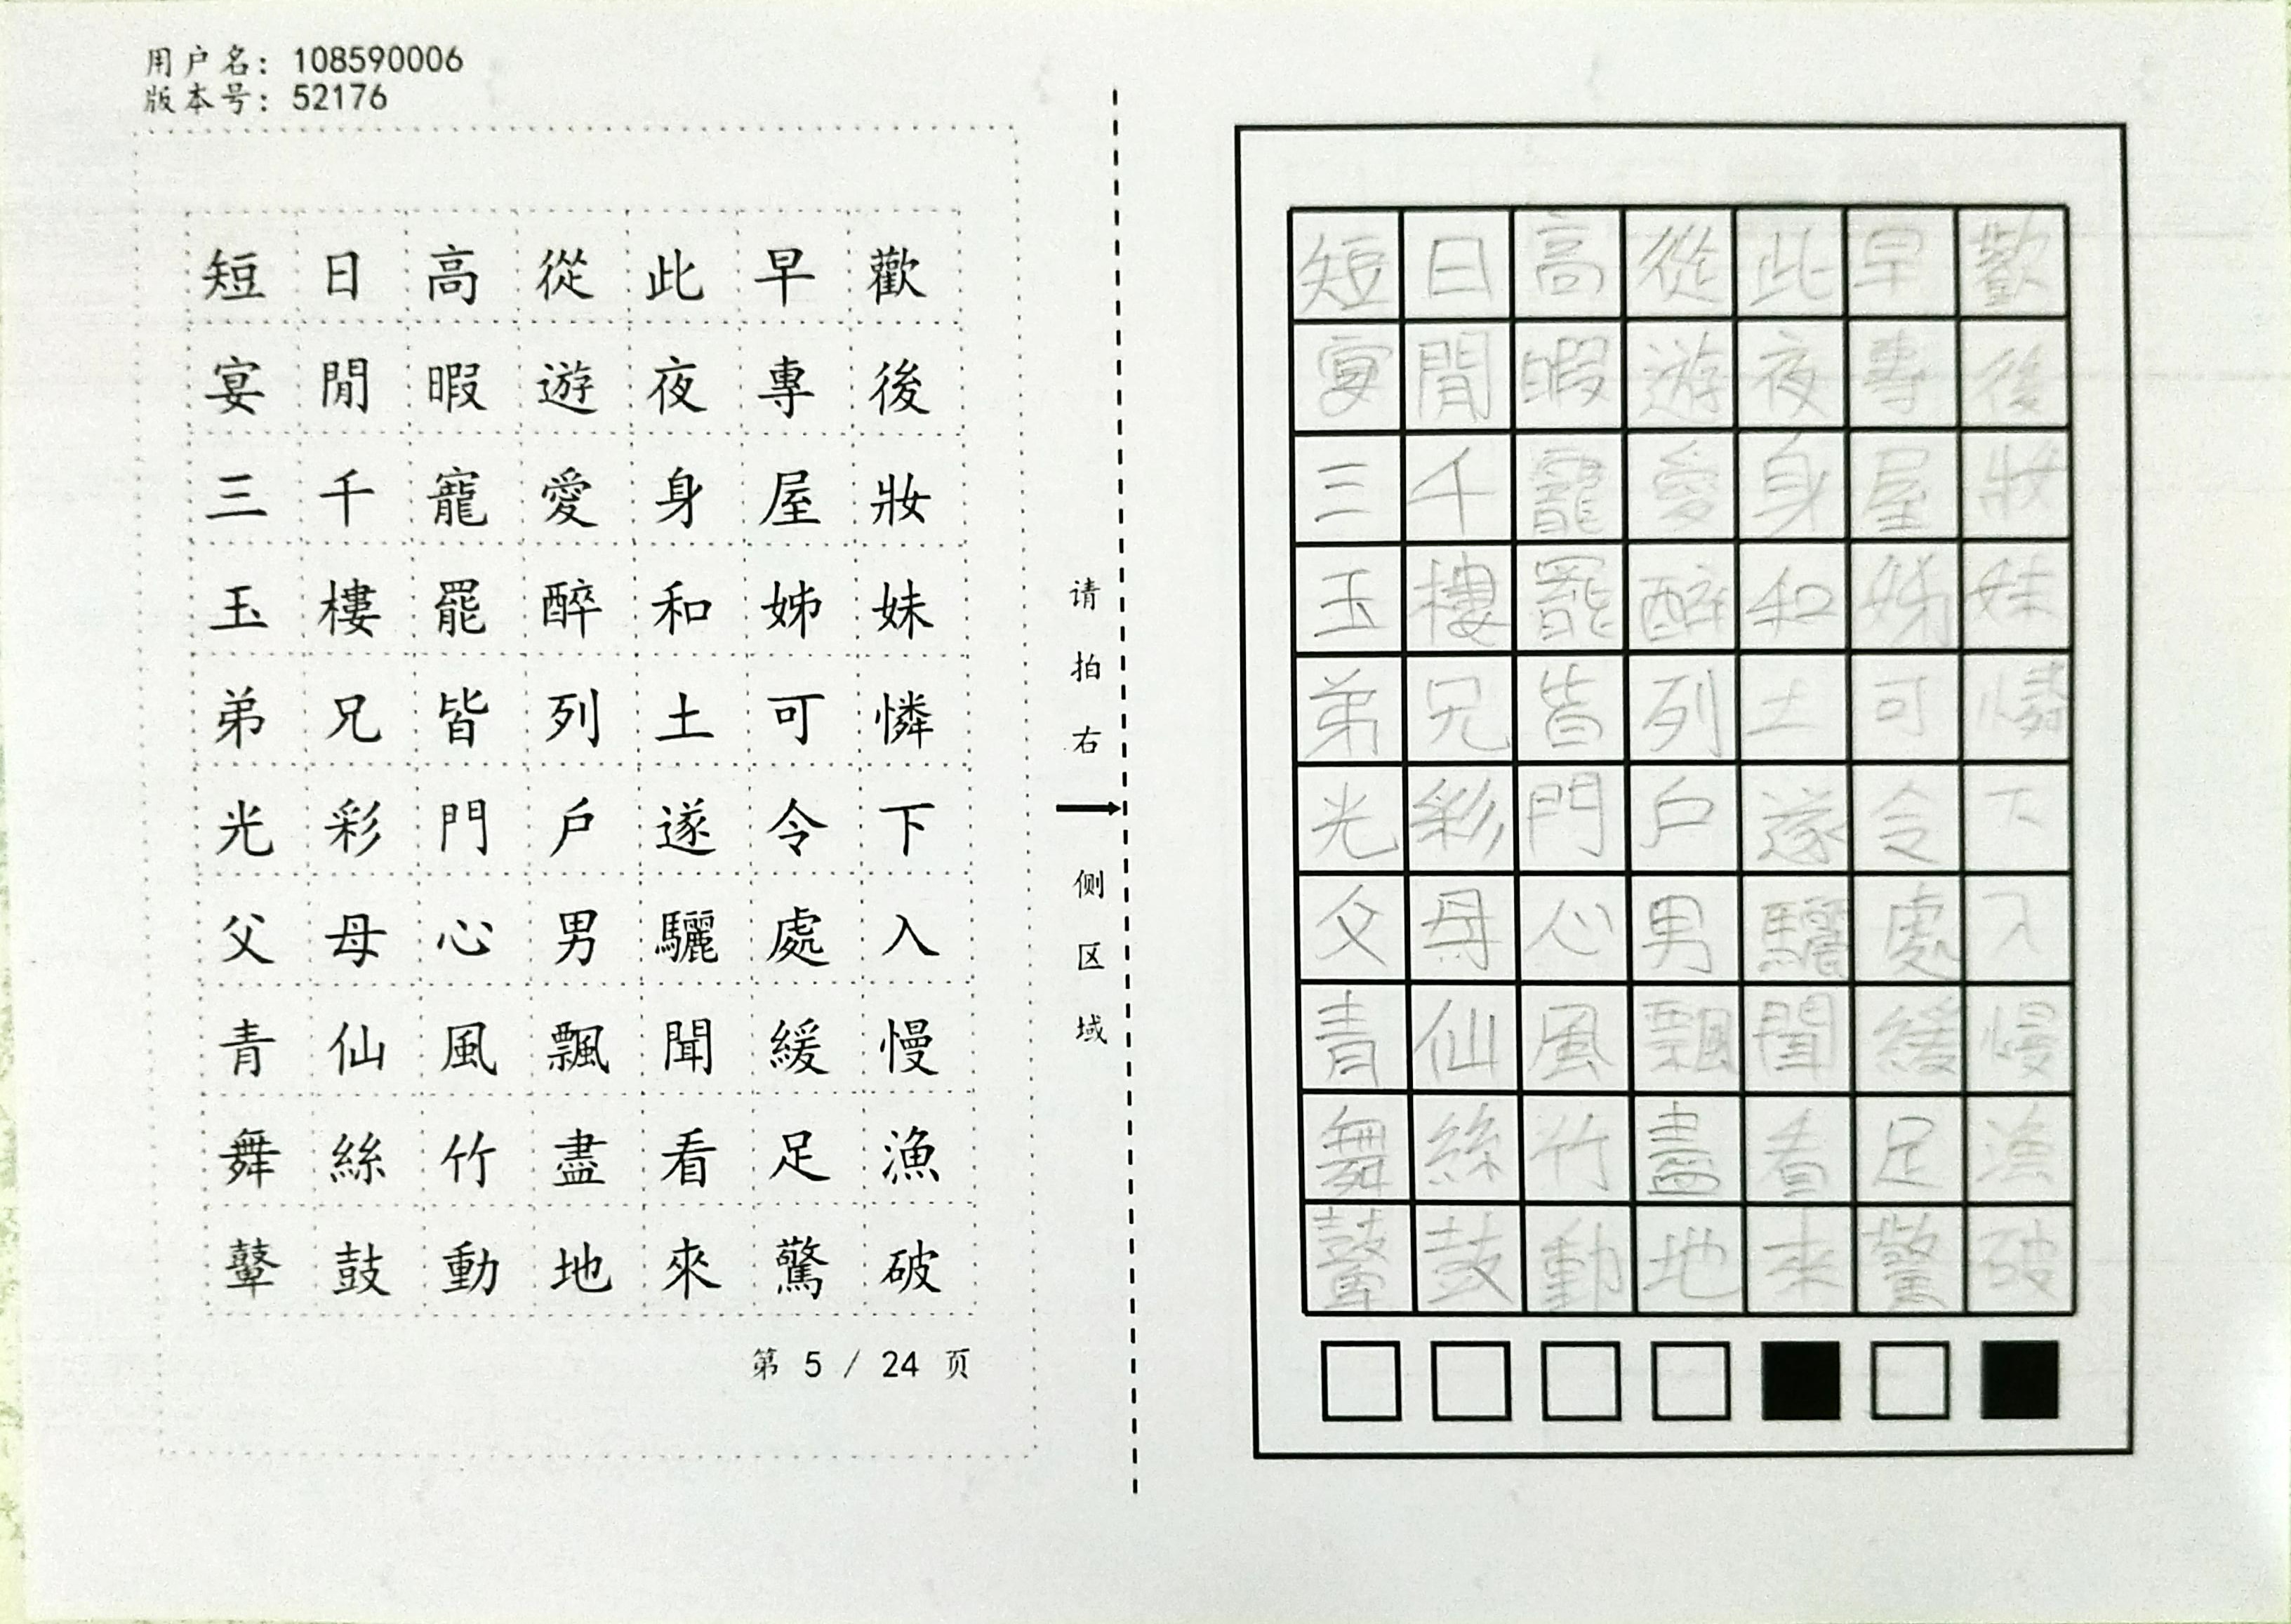 用户名：108590006
版本号：52176
短日高從此早歡
宴閒暇遊夜專後
三千寵愛身屋妝
玉樓罷醉和姊妹
弟兄皆列土可憐
光彩門戶遂令下
父母心男驪處入
青仙風飄聞緩慢
舞絲竹盡看足漁
鼙鼓動地來驚破
第 5 / 24 页
请拍右侧区域
短日高從此早歡
宴閒暇遊夜專後
三千寵愛身屋妝
玉樓罷醉和姊妹
弟兄皆列土可憐
光彩門戶遂令下
父母心男驪處入
青仙風飄聞緩慢
舞絲竹盡看足漁
鼙鼓動地來驚破